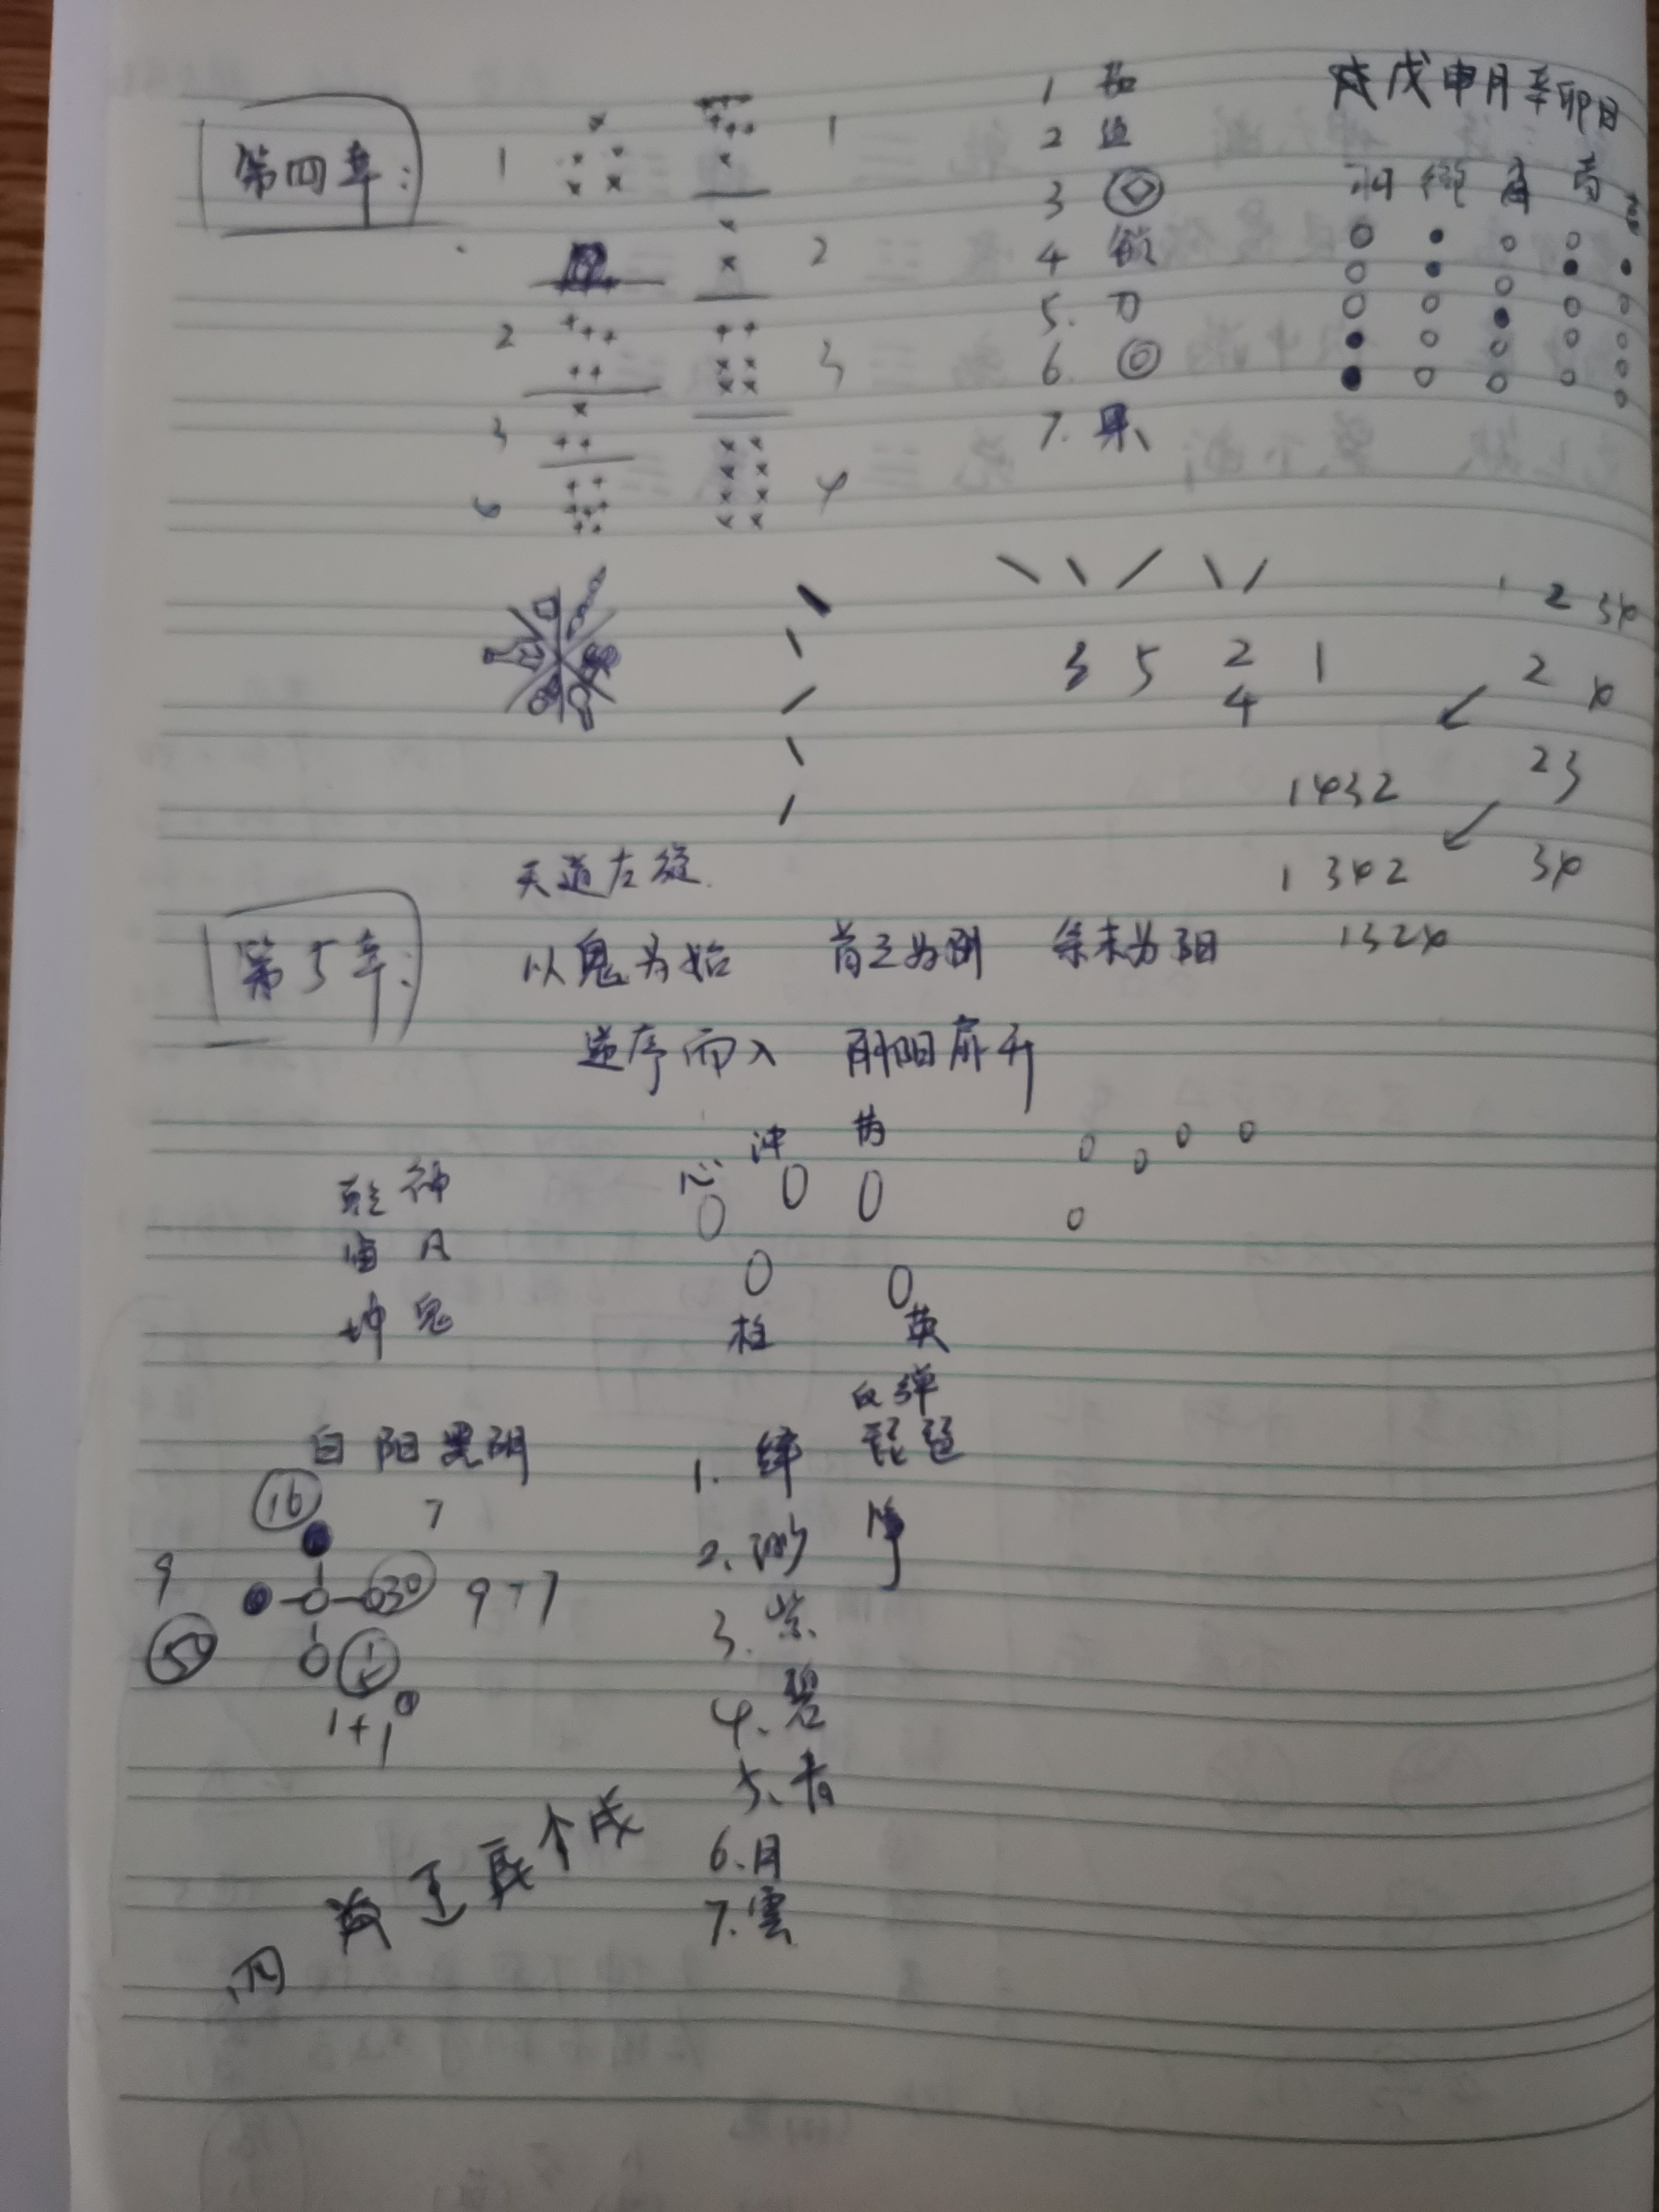 第四章:
1
2
3
6
1
2
3
4
1
2
3
4 锁
5. 刀
6.
7. 果
戊申月辛卯日
羽 徵 角 商
3 5 2 1
4
1 2 3 4
2 4
2 3
3 4
1432
1342
1324
天道左旋
第5章:
以鬼为始 首之为阴 余未为阳
逆序而入 阴阳扉开
乾 神
凡
坤 鬼
心 冲 芮
柱 英
白阳黑阴
16
7
9
30
9+7
50
1
1+1
反弹
琵琶
1. 绛
2. 渺
3. 紫
4. 碧
5. 青
6. 月
7. 雲
四